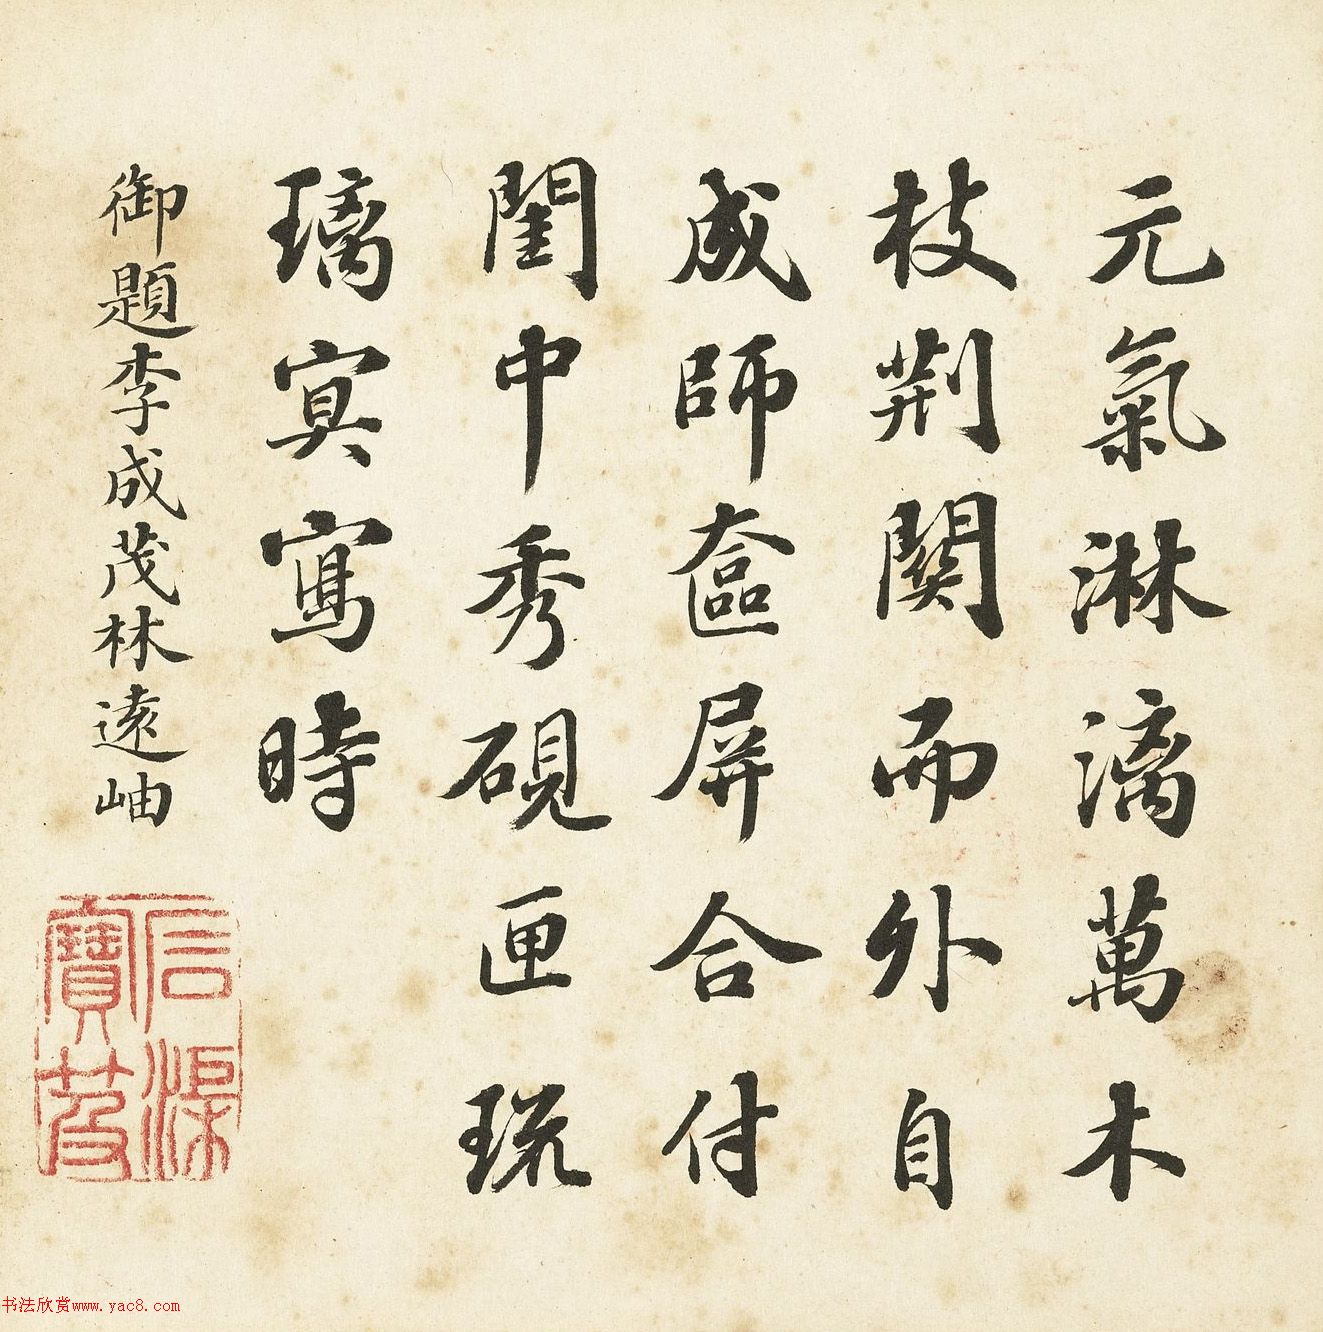 元氣淋漓萬木
枝荆關而外自
成師奩屏合付
閨中秀硯匣琉
璃寘寫時
御題李成茂林遠岫
书法欣赏www.yac8.com